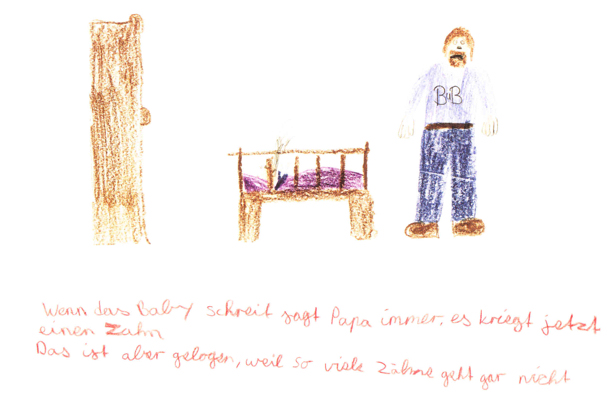 BuB
Wenn das Baby schreit sagt Papa immer, es kriegt jetzt
einen Zahn
Das ist aber gelogen, weil so viele Zähne geht gar nicht